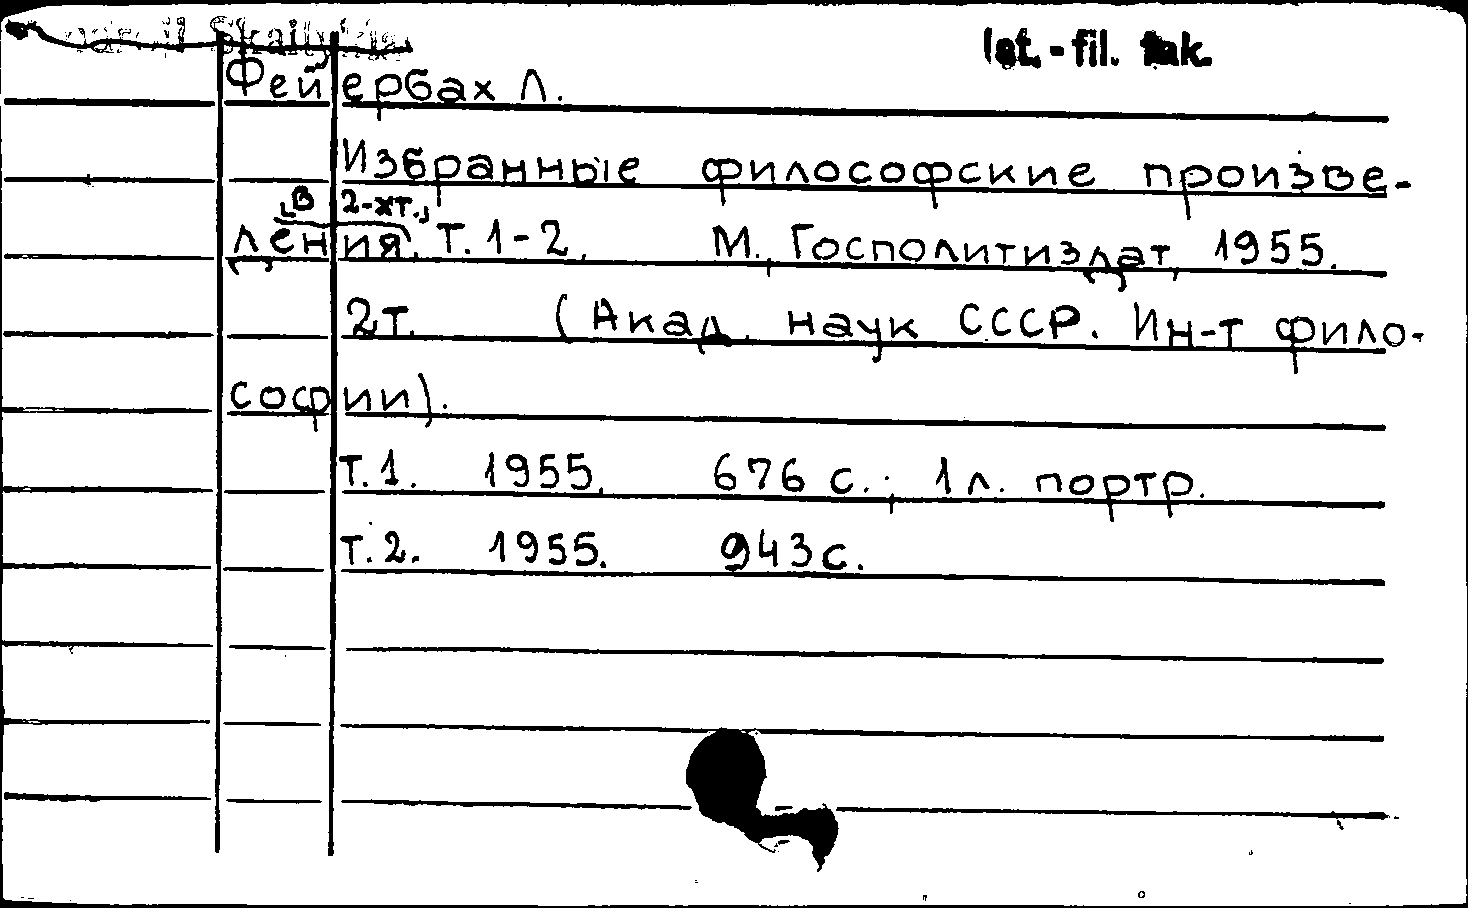 Ist.-fil. fak.
Фейербах Л.
Избранные философские произве-
[в 2-хт.]
дения. Т. 1-2. М., Госполитиздат, 1955.
2т. (Акад. наук СССР. Ин-т фило-
софии).
т.1. 1955. 676 с.; 1л. портр.
т.2. 1955. 943с.